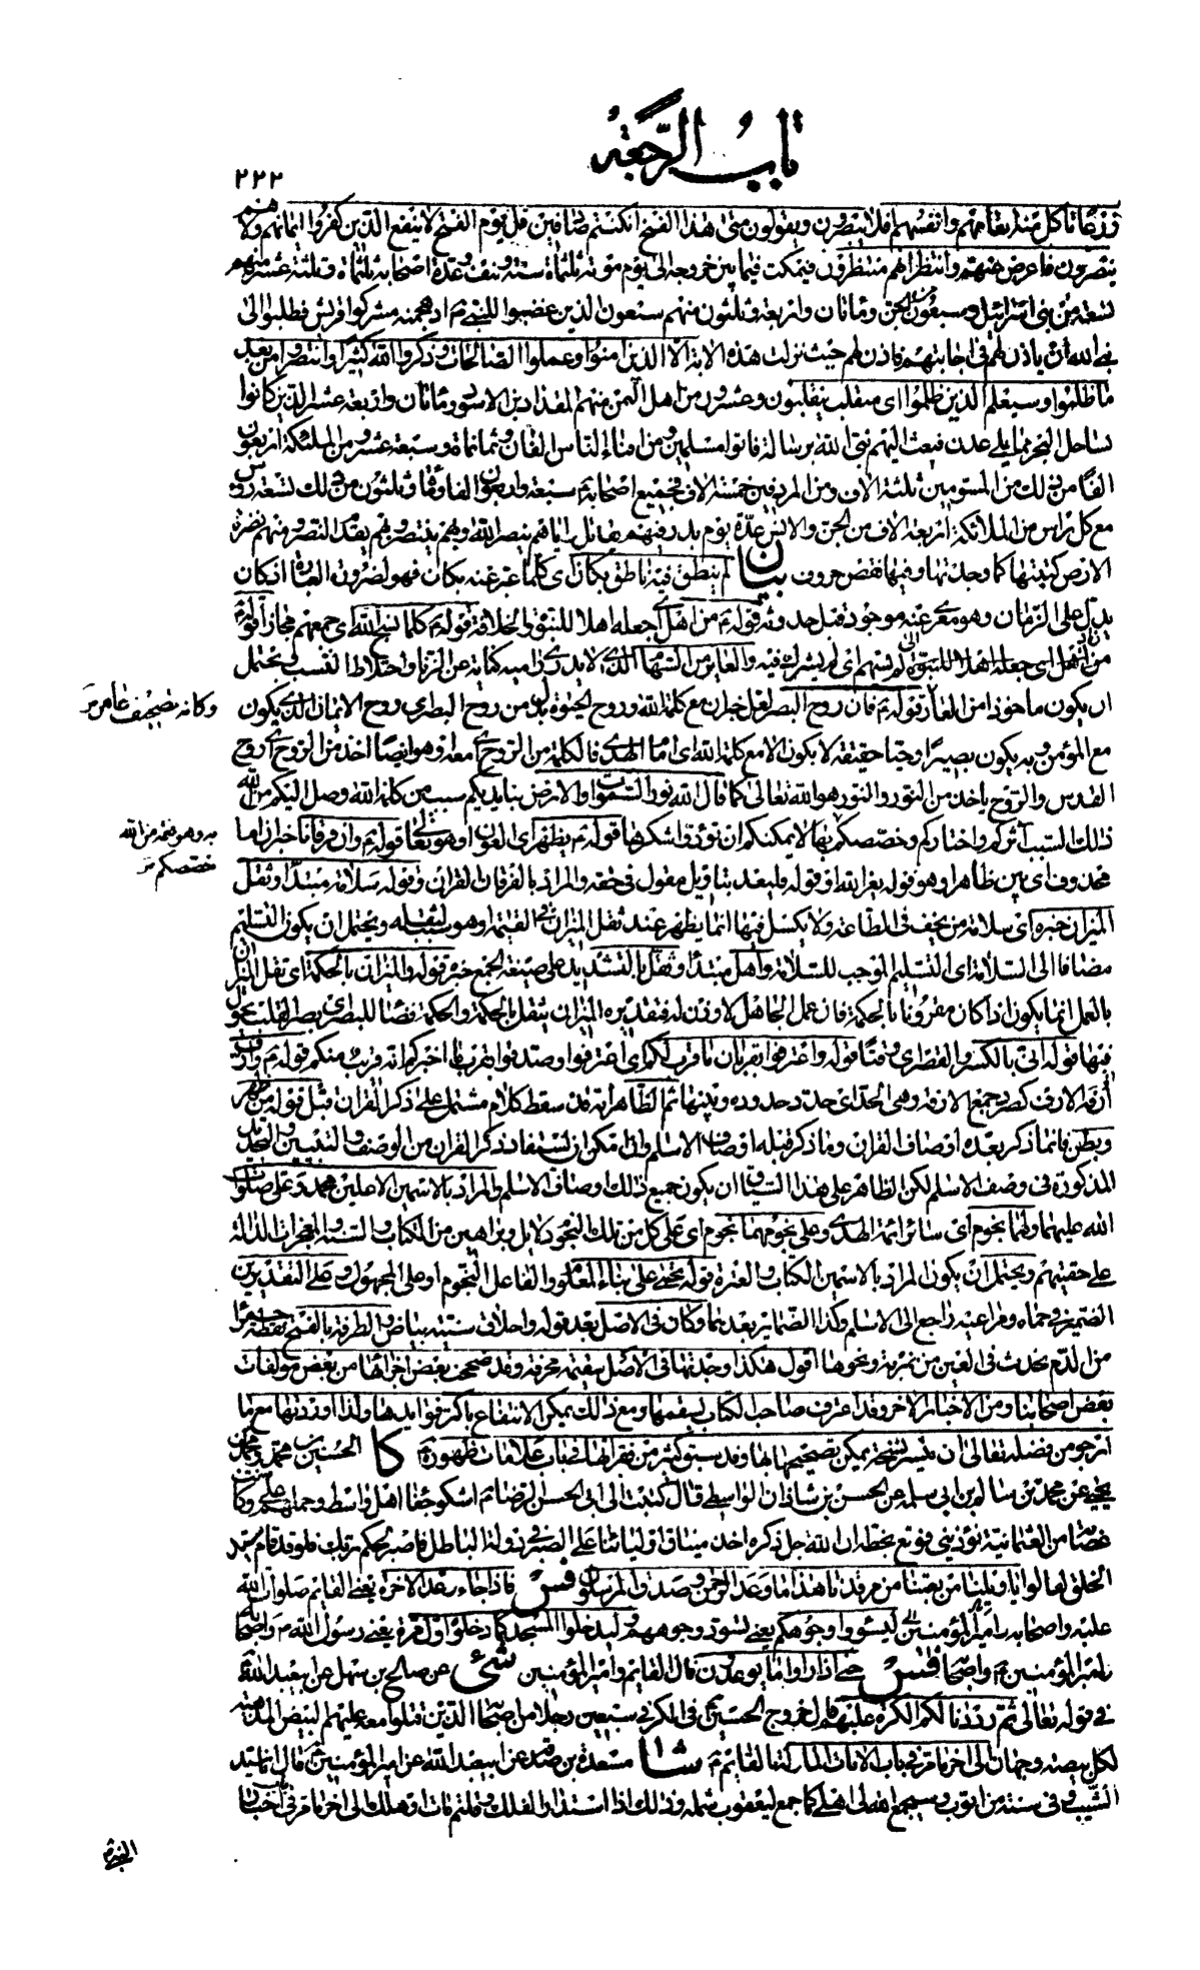 باب الرجعة
٢٢٢
زرعا تأكل منه انعامهم وانفسهم افلا يبصرون ويقولون متى هذا الفتح ان كنتم صادقين قل يوم الفتح لا ينفع الذين كفروا ايمانهم ولا هم
ينصرون فاعرض عنهم وانتظر انهم منتظرون فيمكث فيما بين خروجه الى يوم موته ثلثمأة سنة ونيف وعدة اصحابه ثلثمأة وثلثة عشر منهم
تسعة من بنى اسرائيل وسبعون من الجن ومأتان واربعة وثلثون منهم سبعون الذين غضبوا للنبى ص اذ هجمته مشركوا قريش فطلبوا الى
نبى الله ان يأذن لهم فى اجابتهم فاذن لهم حيث نزلت هذه الاية الا الذين امنوا وعملوا الصالحات وذكروا الله كثيرا وانتصروا من بعد
ما ظلموا وسيعلم الذين ظلموا اى منقلب ينقلبون وعشرون من اهل اليمن منهم المقداد بن الاسود ومأتان واربعة عشر الذين كانوا
بساحل البحر مما يلى عدن فبعث اليهم نبى الله برسالة فاتوا مسلمين ومن افناء الناس الفان وثمانمأة وسبعة عشر ومن الملئكة اربعون
الفا من ذلك من المسومين ثلثة الاف ومن المردفين خمسة الاف فجميع اصحابه ع سبعة واربعون الفا ومأة وثلثون من ذلك تسعة رؤس
مع كل رأس من الملائكة اربعة الاف من الجن والانس عدة يوم بدر فبهم يقاتل واياهم ينصر الله وبهم ينتصر وبهم يقدم النصر ومنهم نضرة
الارض كتبتها كما وجدتها وفيها نقص حروف بيان لم ينطق فيه ناطق بكان اى كلما عبر عنه بكان فهو لضرورة العبارة اذ كان
يدل على الزمان وهو معرى عنه موجود قبل حدوثه قوله ع من اهل اى جعله اهلا للنبوة والخلافة قوله ع كلما نسج الله اى جمعهم مجازا قوله ع
ان يكون مأخوذا من العار قوله ع فان روح البصر لعل خبر ان مع كلمة الله وروح الحيوة بدل من روح البصر اى روح الايمان الذى يكون
وكانه تصحيف عاهر مر
مع المؤمن وبه يكون بصيرا وحيا حقيقة لا يكون الا مع كلمة الله اى امام الهدى فالكلمة من الروح اى معه او هو ايضا اخذ من الروح اى روح
القدس والروح يأخذ من النور والنور هو الله تعالى كما قال الله نور السموات والارض بنايديكم سبب من كلمة الله وصل اليكم من الله
ذلك السبب آثركم واختاركم وخصصكم بها لا يمكنكم ان تؤدوا شكرها قوله ع يظهر اى العون او هو تعالى قوله ع وان فرقانا خبر ان اما
به وهو نعمة من الله خصصكم مر
محذوف اى بين ظاهر او هو قوله يعز الله او قوله فليعد بتأويل مقول فى حقه والمراد بالفرقان القران وقوله سلامة مبتدأ وثقل
الميزان خبره اى سلامة من يخف فى الطاعة ولا يكسل فيها انما يظهر عند ثقل الميزان فى القيمة او هو سبب لثقله ويحتمل ان يكون التسليم
مضافا الى السلامة اى التسليم الموجب للسلامة واهل مبتدأ وثقل بالتشديد على صيغة الجمع خبره قوله والميزان بالحكمة اى ثقل الميزان
بالعمل انما يكون اذا كان مقرونا بالحكمة فان عمل الجاهل لا وزن له فتقديره الميزان يثقل بالحكمة والحكمة فضاء للبصر اى بصر القلب يجول
فيها قوله انى بالكسر والقصر اى وقتا قوله واعترفوا بقربان ما قرب لكم اى اعترفوا وصدقوا بقرب ما اخبركم انه قريب منكم قوله ع وارف
ارفه الارف كصرد جمع الارفة وهى الحد اى حدد حدوده وبينها ثم الظاهر انه قد سقط كلام مشتمل على ذكر القران قبل قوله من ظهر
وبطن فانما ذكر بعده اوصاف القران وما ذكر قبله اوصاف الاسلام وان امكن ان يستفاد ذكر القران من الوصف والتبيين والتحديد
المذكورة فى وصف الاسلام لكن الظاهر على هذا السياق ان يكون جميع ذلك اوصاف الاسلام والمراد بالاسمين الاعلين محمد وعلى صلوات
الله عليهما ولهما نجوم اى سائر ائمة الهدى وعلى نجومهما نجوم اى على كل من تلك النجوم دلايل وبراهين من الكتاب والسنة والمعجزات الدالة
على حقيتهم ويحتمل ان يكون المراد بالاسمين الكتاب والعترة قوله تحمى على بناء المعلوم والفاعل النجوم او على المجهول وعلى التقديرين
الضمير فى حماه ومراعيه راجع الى الاسلام وكذا الضمائر بعدهما وكان فى الاصل بعد قوله واخلاق سنية بياض والطرفة بالفتح نقطة حمراء
من الدم تحدث فى العين من ضربة ونحوها اقول هكذا وجدتها فى الاصل سقيمة محرفة وقد صححت بعض اجزائها من بعض مؤلفات
بعض اصحابنا ومن الاخبار الاخر وقد اعترف صاحب الكتاب بسقمها ومع ذلك يمكن الانتفاع باكثر فوايدها ولذا اوردتها مع ما
ارجو من فضله تعالى ان يتيسر نسخة يمكن تصحيحها بها وقد سبق كثير من فقراتها فى باب علامات ظهوره ع كا الحسين بن محمد ومحمد بن
يحيى عن محمد بن سالم بن ابى سلمة عن الحسن بن شاذان الواسطى قال كتبت الى ابى الحسن الرضا ع اشكو جفاء اهل واسط وحملهم على وكانت
عصابة من العثمانية تؤذينى فوقع بخطه ان الله جل ذكره اخذ ميثاق اوليائنا على الصبر فى دولة الباطل فاصبر لحكم ربك فلو قد قام سيد
الخلق لقالوا يا ويلنا من بعثنا من مرقدنا هذا ما وعد الرحمن وصدق المرسلون فس فاذا جاء وعد الاخرة يعنى القائم صلوات الله
عليه واصحابه ليسؤوا وجوهكم يعنى لتسود وجوههم وليدخلوا المسجد كما دخلوه اول مرة يعنى رسول الله ص واصحابه
وامير المؤمنين ع واصحابه فس حتى اذا راوا ما يوعدون قال القائم وامير المؤمنين شى عن صالح بن سهل عن ابيعبد الله ع
فى قوله تعالى ثم رددنا لكم الكرة عليهم قال خروج الحسين ع فى الكرة فى سبعين رجلا من اصحابه الذين قتلوا معه عليهم البيض المذهبة
لكل بيضة وجهان الى اخر ما مر فى باب الايات المأولة بالقائم ع شا مسعدة بن صدقة عن ابيعبد الله عن امير المؤمنين ع قال
الشيب وفى سنة من ايوب وسيجمع الله لى اهلى كما جمع ليعقوب شمله وذلك اذا استدار الفلك وقلتم مات او هلك الى اخر ما مر فى باب اخبار